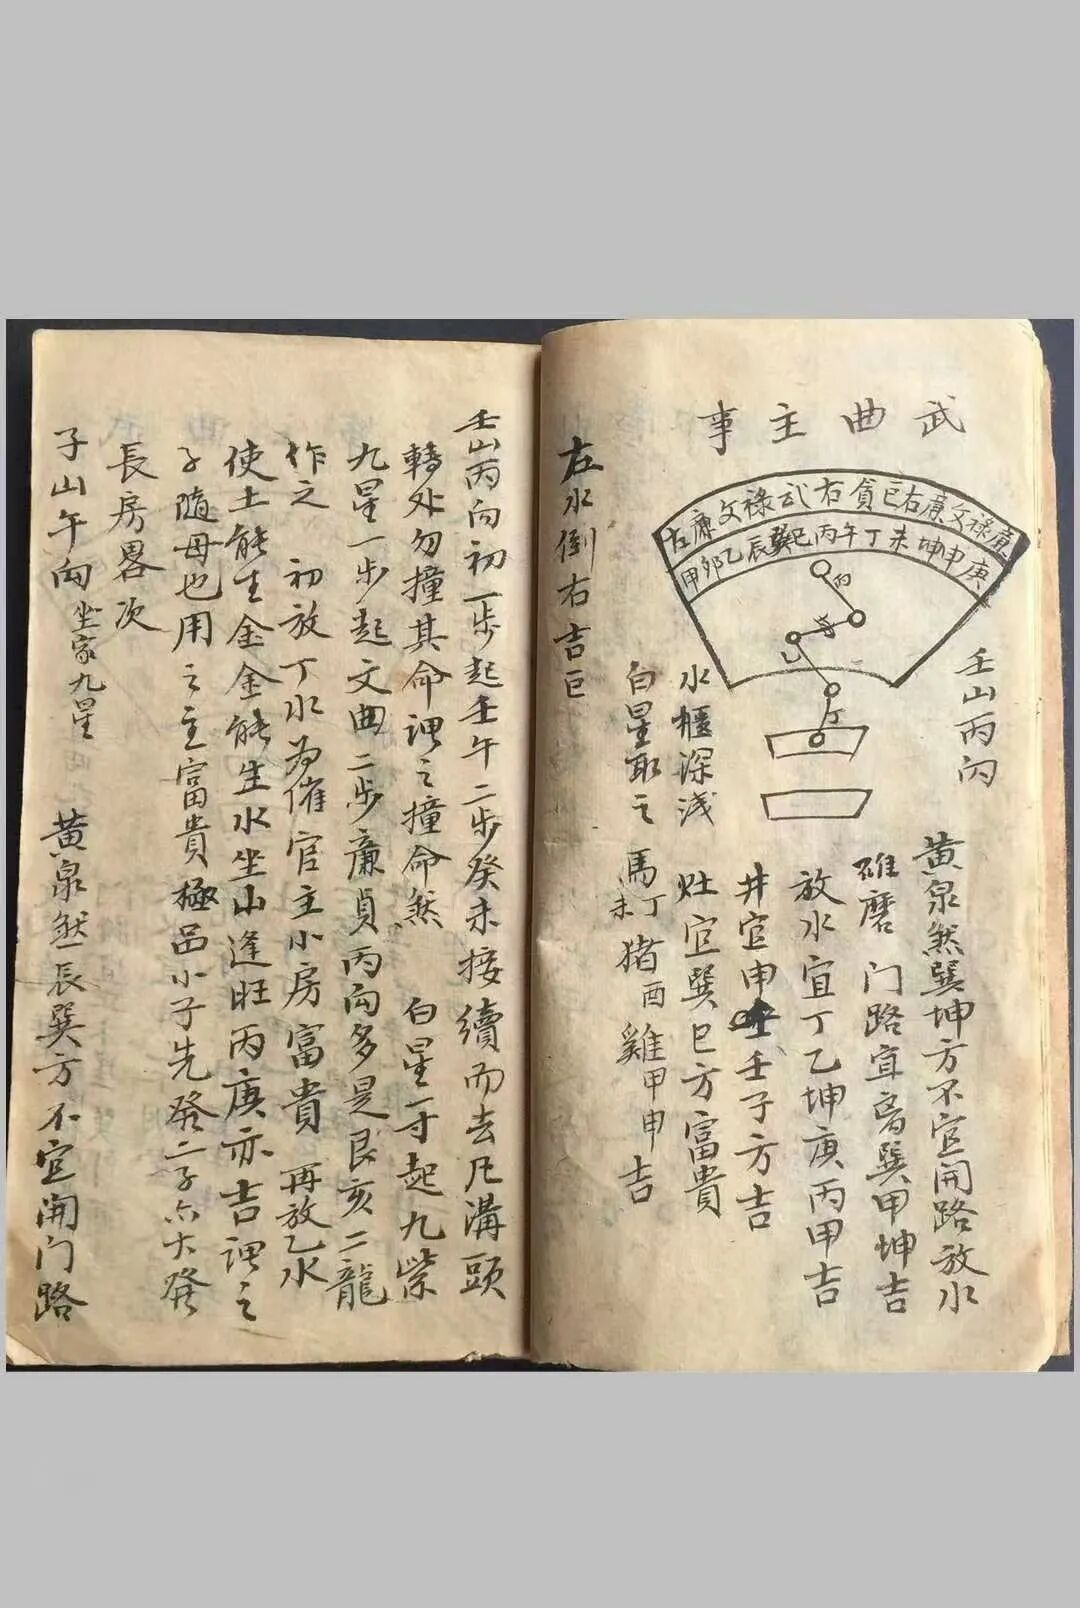 武曲主事
廉祿文廉右巨貪右武祿文廉左
庚申坤未丁午丙巳巽辰乙卯甲
丙
乙
丁
壬山丙向
黄泉煞巽坤方不宜開路放水
碓磨 门路宜离巽甲坤吉
放水宜丁乙坤庚丙甲吉
井宜申壬子方吉
水櫃深浅 灶宜巽巳方富貴
白星取之 馬丁未猪酉雞甲申吉
左水倒右吉巨
壬山丙向初一步起壬午二步癸未接續而去凡溝頭
轉处勿撞其命謂之撞命煞 白星一寸起九紫
九星一步起文曲二步廉貞丙向多是艮亥二龍
作之 初放丁水為催官主小房富貴 再放乙水
使土能生金金能生水坐山逢旺丙庚亦吉謂之
子隨母也用之主富貴極品小子先發二子亦大發
長房畧次
子山午向坐家九星 黄泉煞辰巽方不宜開门路